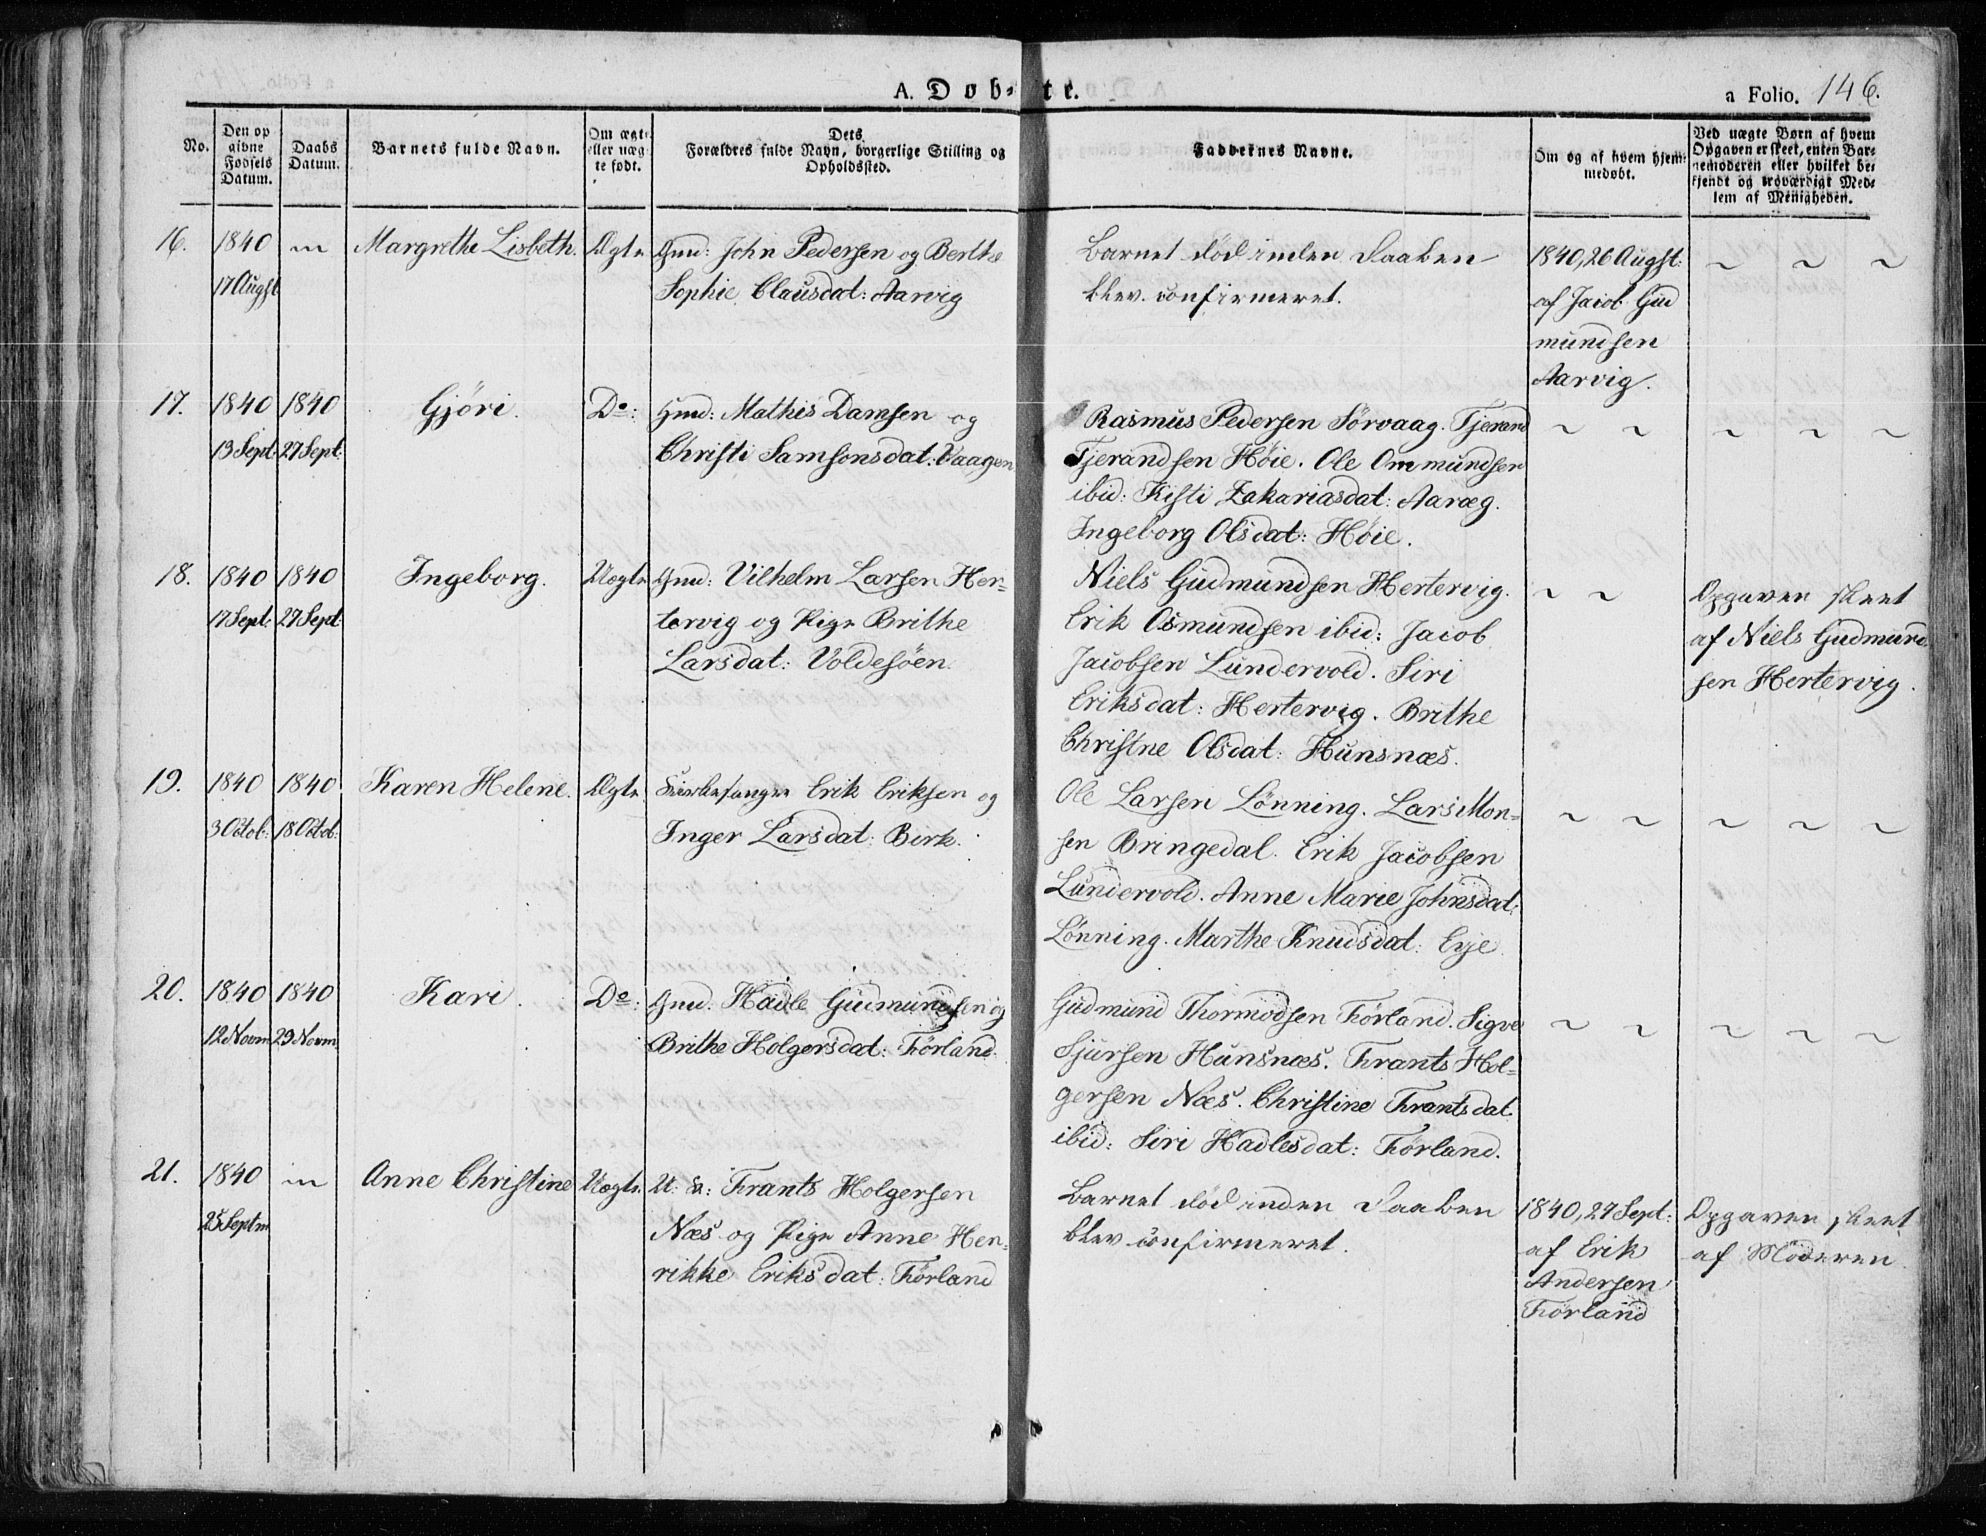 A. Døb-te.
a Folio. 146.
No.
Den opgivne Fødsels Datum.
Daabs Datum.
Barnets fulde Navn.
Om ægte eller uægte født.
Dets Forældres fulde Navn, borgerlige Stilling og Opholdssted.
Faddernes Navne.
Om og af hvem hjemmedøbt.
Ved uægte Børn af hvem Opgaven er skeet, enten Barnemoderen eller hvilket bekjendt og troværdigt Medlem af Menigheden.
16.
1840
17 Augst
Margrethe Lisbeth.
Ægte
Gmd: John Pedersen og Berthe
Sophie Clausdat: Aarvig
Barnet død inden Daaben
blev confirmeret.
1840, 26 Augst:
af Jacob Gud
mundsen
Aarvig.
17.
1840
13 Sept:
1840
27 Sept:
Gjøri.
Do:
Gmd: Mathis Damsen og
Christi Samsonsdat: Vaagen
Rasmus Pedersen Sørvaag. Tjerand
Tjerandsen Høie. Ole Ommundsen
ibid: Kisti Zakariasdat: Aaræg.
Ingeborg Olsdat: Høie.
18.
1840
17 Sept:
1840
27 Sept:
Ingeborg.
Uegte
Gmd: Vilhelm Larsen Her-
tervig og Pige Brithe
Larsdat: Voldesøen.
Niels Gudmundsen Hertervig.
Erik Osmundsen ibid: Jacob
Jacobsen Lundervold. Siri
Eriksdat: Hertervig. Brithe
Christne Olsdat: Hunsnæs.
Opgaven skeet
af Niels Gudmund
sen Hertervig.
19.
1840
3 Octob:
1840
18 Octob:
Karen Helene.
Ægte
Kirkesanger Erik Eriksen og
Inger Larsdat: Birk.
Ole Larsen Lønning. Lars Mon-
sen Bringedal. Erik Jacobsen
Lundervold. Anne Marie Johnsdat:
Lønning. Marthe Knudsdat: Eije
20.
1840
12 Novm
1840
29 Novm
Kari.
Do:
Gmd: Hadle Gudmundsen og
Brithe Holgersdat: Førland.
Gudmund Thormodsen Førland. Sigve
Sjursen Hunsnæs. Frants Hol-
gersen Næs. Christine Frantsdat
ibid: Siri Hadlesdat: Førland.
21.
1840
25 Septm
Anne Christine
Uegte
U: K: Frants Holgersen
Næs og Pige Anne Hen-
rikke Eriksdat: Førland
Barnet død inden Daaben
blev confirmeret.
1840, 27 Sept:
af Erik
Andersen
Førland
Opgaven skeet
af Moderen.